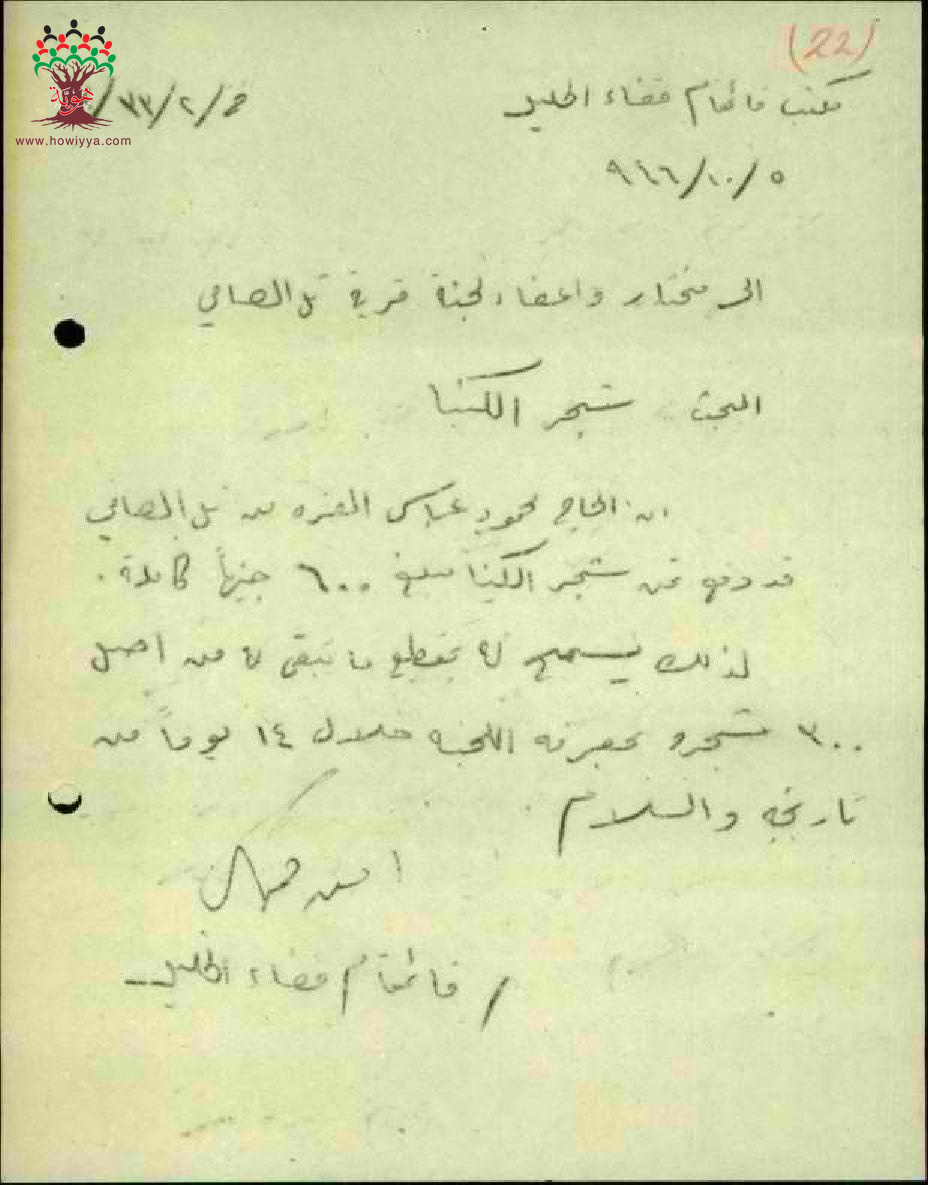 (22)
هوية
www.howiyya.com
مكتب قائمقام قضاء الخليل
خ/٢/٣٣/
٥/١٠/٩٤٦
الى مختار واعضاء لجنة قرية تل الصافي
البحث شجر الكينا
ان الحاج محمود عباس العزه من تل الصافي
قد دفع ثمن شجر الكينا مبلغ ٦٠٠ جنيهاً كاملة.
لذلك يسمح له بقطع ما تبقى له من اصل
٣٠٠ شجره بمعرفة اللجنه خلال ١٤ يوماً من
تاريخه والسلام
/ قائمقام قضاء الخليل